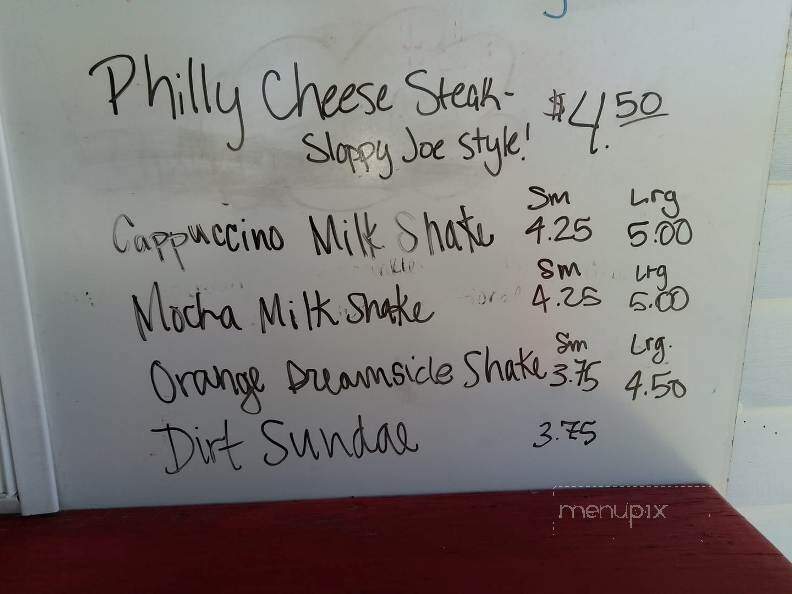 Philly Cheese Steak- $4.50
Sloppy Joe Style!
Sm Lrg
Cappuccino Milk Shake 4.25 5.00
Sm Lrg
Mocha Milk Shake 4.25 5.00
Sm Lrg.
Orange Dreamsicle Shake 3.75 4.50
Dirt Sundae 3.75
menupix